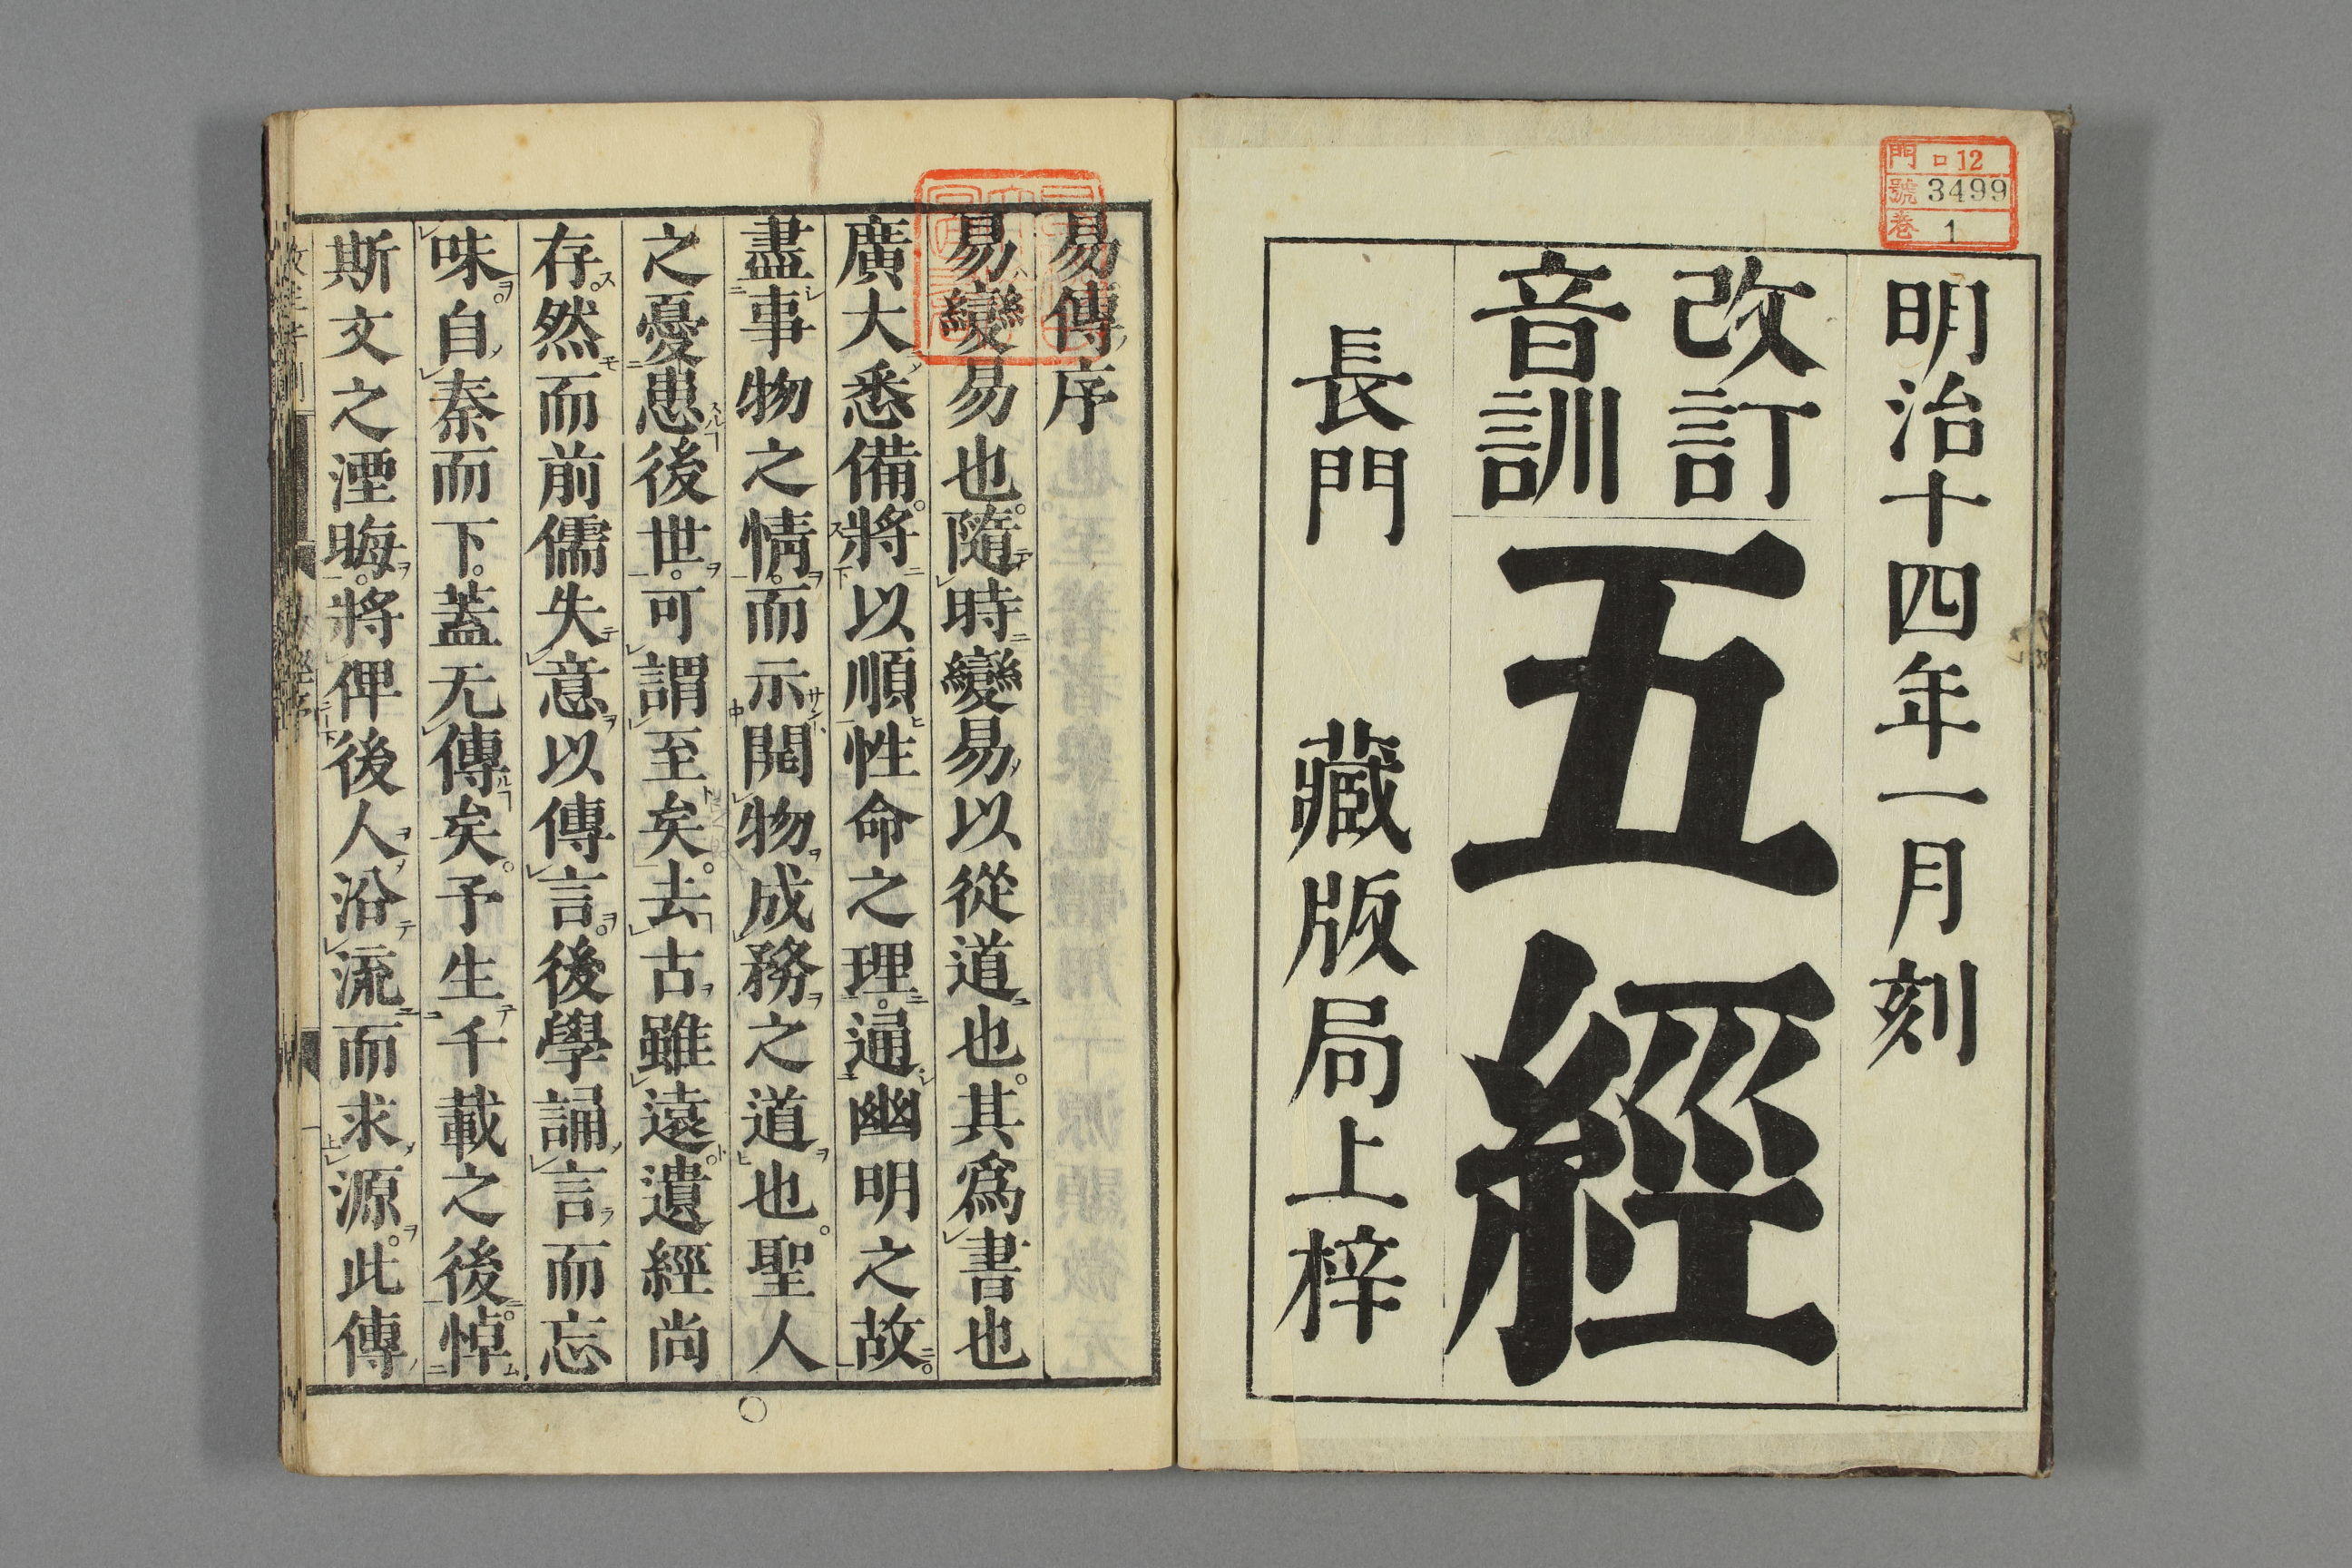 門 ロ12
號 3499
卷 1
明治十四年一月刻
改訂
音訓
五經
長門 藏版局上梓
易傳序
易變易也。隨時變易以從道也。其爲書也
廣大悉備。將以順性命之理。通幽明之故。
盡事物之情。而示開物成務之道也。聖人
之憂患後世。可謂至矣。去古雖遠。遺經尚
存。然而前儒失意以傳言。後學誦言而忘
味。自秦而下。蓋无傳矣。予生千載之後。悼
斯文之湮晦。將俾後人沿流而求源。此傳